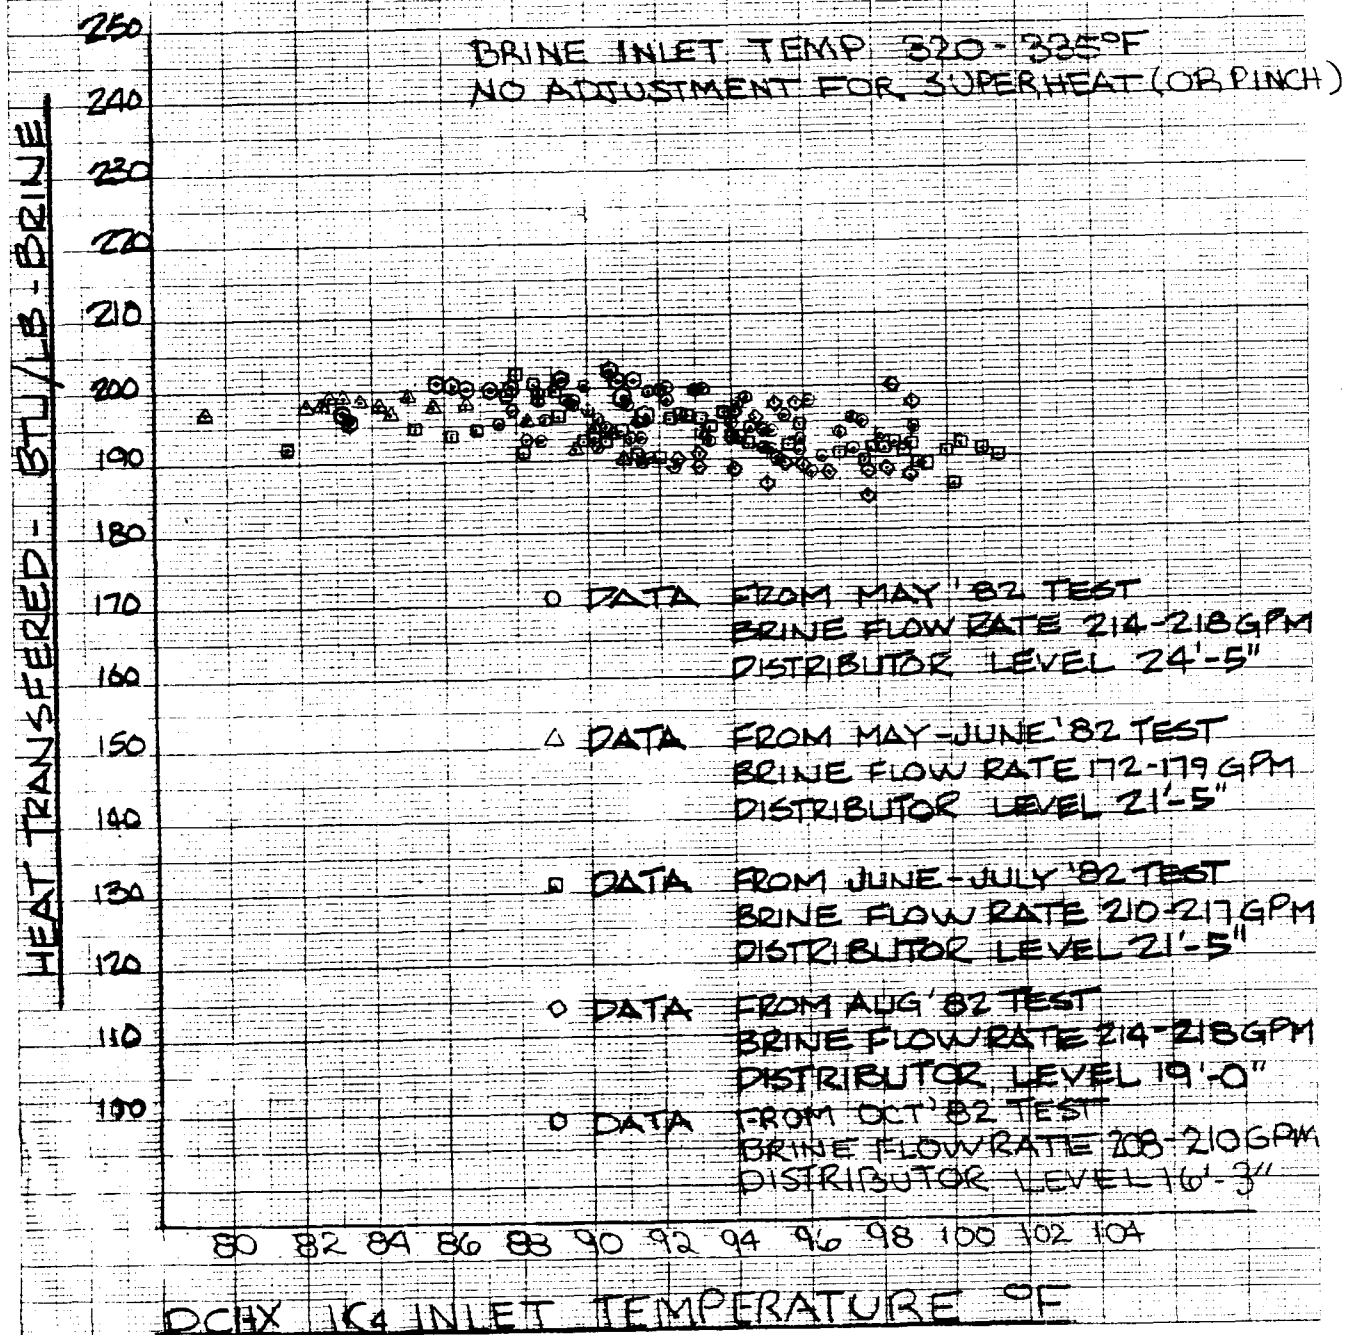 250
BRINE INLET TEMP 320-335°F
NO ADJUSTMENT FOR SUPERHEAT (OR PINCH)
240
230
220
210
200
190
180
170
160
150
140
130
120
110
100
HEAT TRANSFERED - BTU/LB - BRINE
○ DATA FROM MAY '82 TEST
BRINE FLOW RATE 214-218 GPM
DISTRIBUTOR LEVEL 24'-5"
△ DATA FROM MAY-JUNE '82 TEST
BRINE FLOW RATE 172-179 GPM
DISTRIBUTOR LEVEL 21'-5"
□ DATA FROM JUNE-JULY '82 TEST
BRINE FLOW RATE 210-217 GPM
DISTRIBUTOR LEVEL 21'-5"
◇ DATA FROM AUG '82 TEST
BRINE FLOW RATE 214-218 GPM
DISTRIBUTOR LEVEL 19'-0"
○ DATA FROM OCT '82 TEST
BRINE FLOW RATE 208-210 GPM
DISTRIBUTOR LEVEL 16'-3"
80 82 84 86 88 90 92 94 96 98 100 102 104
DCHX IC4 INLET TEMPERATURE °F